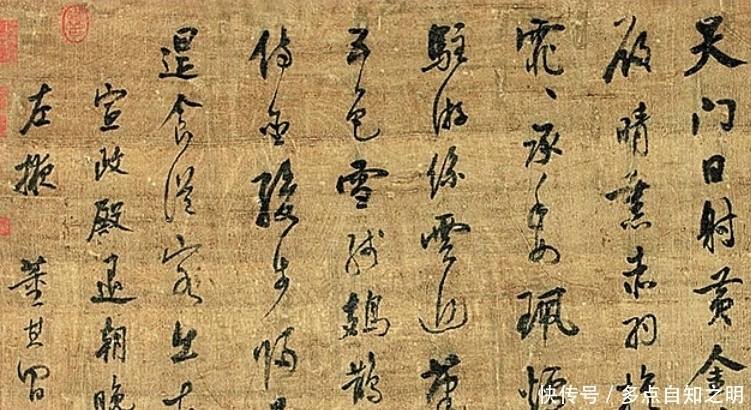 天门日射黄金
殿晴熏赤羽
霏〻承委珮爐
駐游絲雲近蓬
五色雪殘鳷鵲
侍臣緩步歸
退食從容出
宣政殿退朝晚
左掖
董其昌
快传号 / 多点自知之明